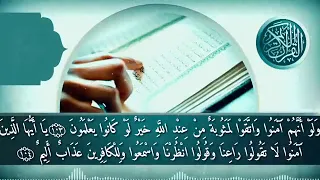 وَلَوْ أَنَّهُمْ آمَنُوا وَاتَّقَوْا لَمَثُوبَةٌ مِنْ عِنْدِ اللَّهِ خَيْرٌ لَوْ كَانُوا يَعْلَمُونَ ﴿١٠٣﴾ يَا أَيُّهَا الَّذِينَ
آمَنُوا لَا تَقُولُوا رَاعِنَا وَقُولُوا انْظُرْنَا وَاسْمَعُوا وَلِلْكَافِرِينَ عَذَابٌ أَلِيمٌ ﴿١٠٤﴾